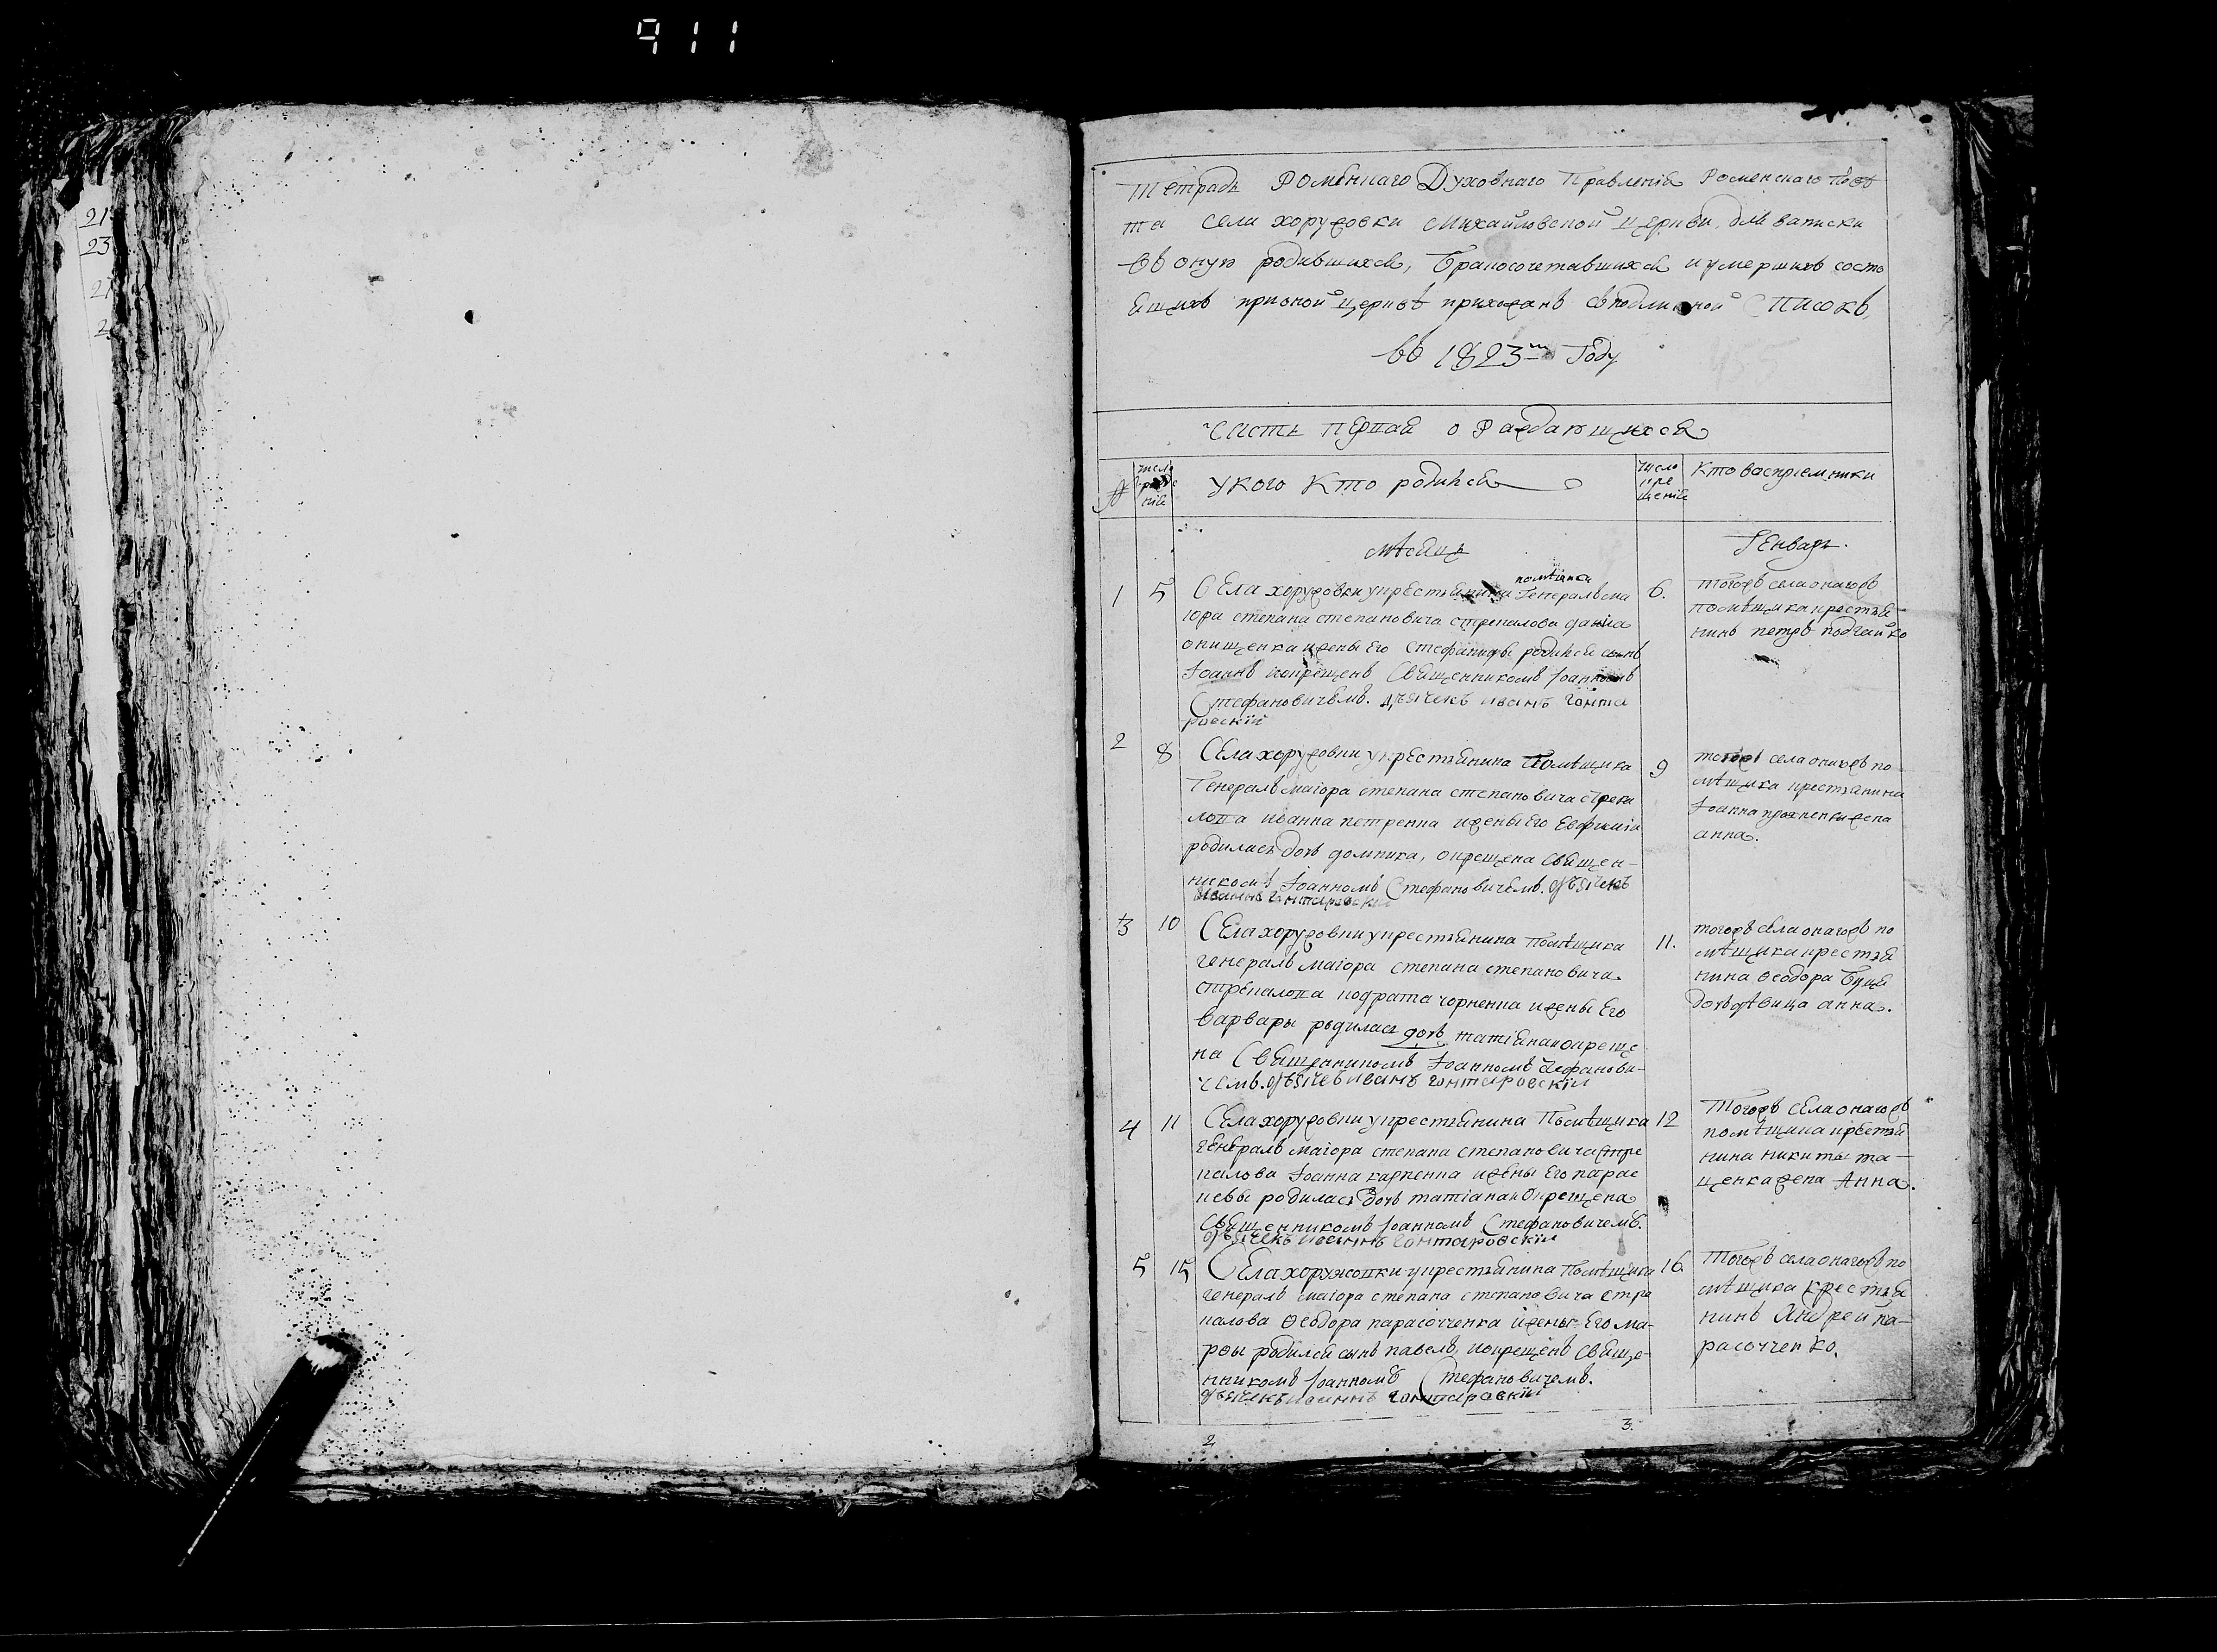 911
21
23
21
2
Тетрадь Роменнаго Духовнаго Правленія Роменскаго повѣ
та села хоружовки Михайловской церкви, для записки
въ оную родившихся, бракосочетавшихся и умершихъ состо
ящихъ при оной церквѣ прихожанъ съ подлинной Списокъ,
въ 1823м Году
Часть первая о Раждающихся
№
число
рожде
нія
У кого Кто родился
число
кре
щенія
Кто восприемники
мѣсяцъ
Генварь.
1
5
Села хоружовки у крестьянина помѣщика Генералъ ма
іора степана степановича стрекалова данила
онищенка и жены Его стефаниды родился сынъ
Іоаннъ и окрещенъ Священникомъ Іоанномъ
Стефановичемъ. дьячекъ иванъ гонта
ровскій
6.
тогожъ села онагожъ
помѣщика крестья-
нинъ петръ подгайко
2
8
Села хоружовки у крестьянина Помѣщика
Генералъ маіора степана степановича стрека
лова иванна петренка и жены Его Евфимии
родилась дочь домника, окрещена Священ-
никомъ Іоанномъ Стефановичемъ. дьячекъ
иваннъ гонтаровскій
9
тогожъ села онагожъ по-
мѣщика крестьянина
Іоанна жена
анна.
3
10
Села хоружовки у крестьянина Помѣщика
генералъ маіора степана степановича
стрекалова кодрата чорненка и жены Его
варвары родилась дочь татіяна и окреще
на Священникомъ Іоанномъ Стефанови-
чемъ. дьячекъ иванъ гонтаровскій
11.
тогожъ села онагожъ по
мѣщика крестья
нина Ѳеодора Буця
дочь дѣвица анна.
4
11
Села хоружовки у крестьянина Помѣщика
генералъ маіора степана степановича стре
калова Іоанна карпенка и жены Его парас
кевы родилась дочь татіана и Окрещена
Священникомъ Іоанномъ Стефановичемъ.
дьячекъ иоаннъ гонтаровскій
12
Тогожъ села онагожъ
помѣщика крестья
нина никиты та-
щенка жена Анна.
5
15
Села хоружовки у крестьянина Помѣщика
генералъ маіора степана степановича стре
калова Ѳеодора парасоченка и жены Его ма-
рѳы родился сынъ павелъ, и окрещенъ Священ-
нникомъ Іоанномъ Стефановичемъ.
дьячекъ иоаннъ гонтаровскій
16.
Тогожъ села онагожъ по
мѣщика крестья
нинъ Андрей па-
расоченко.
2
3.